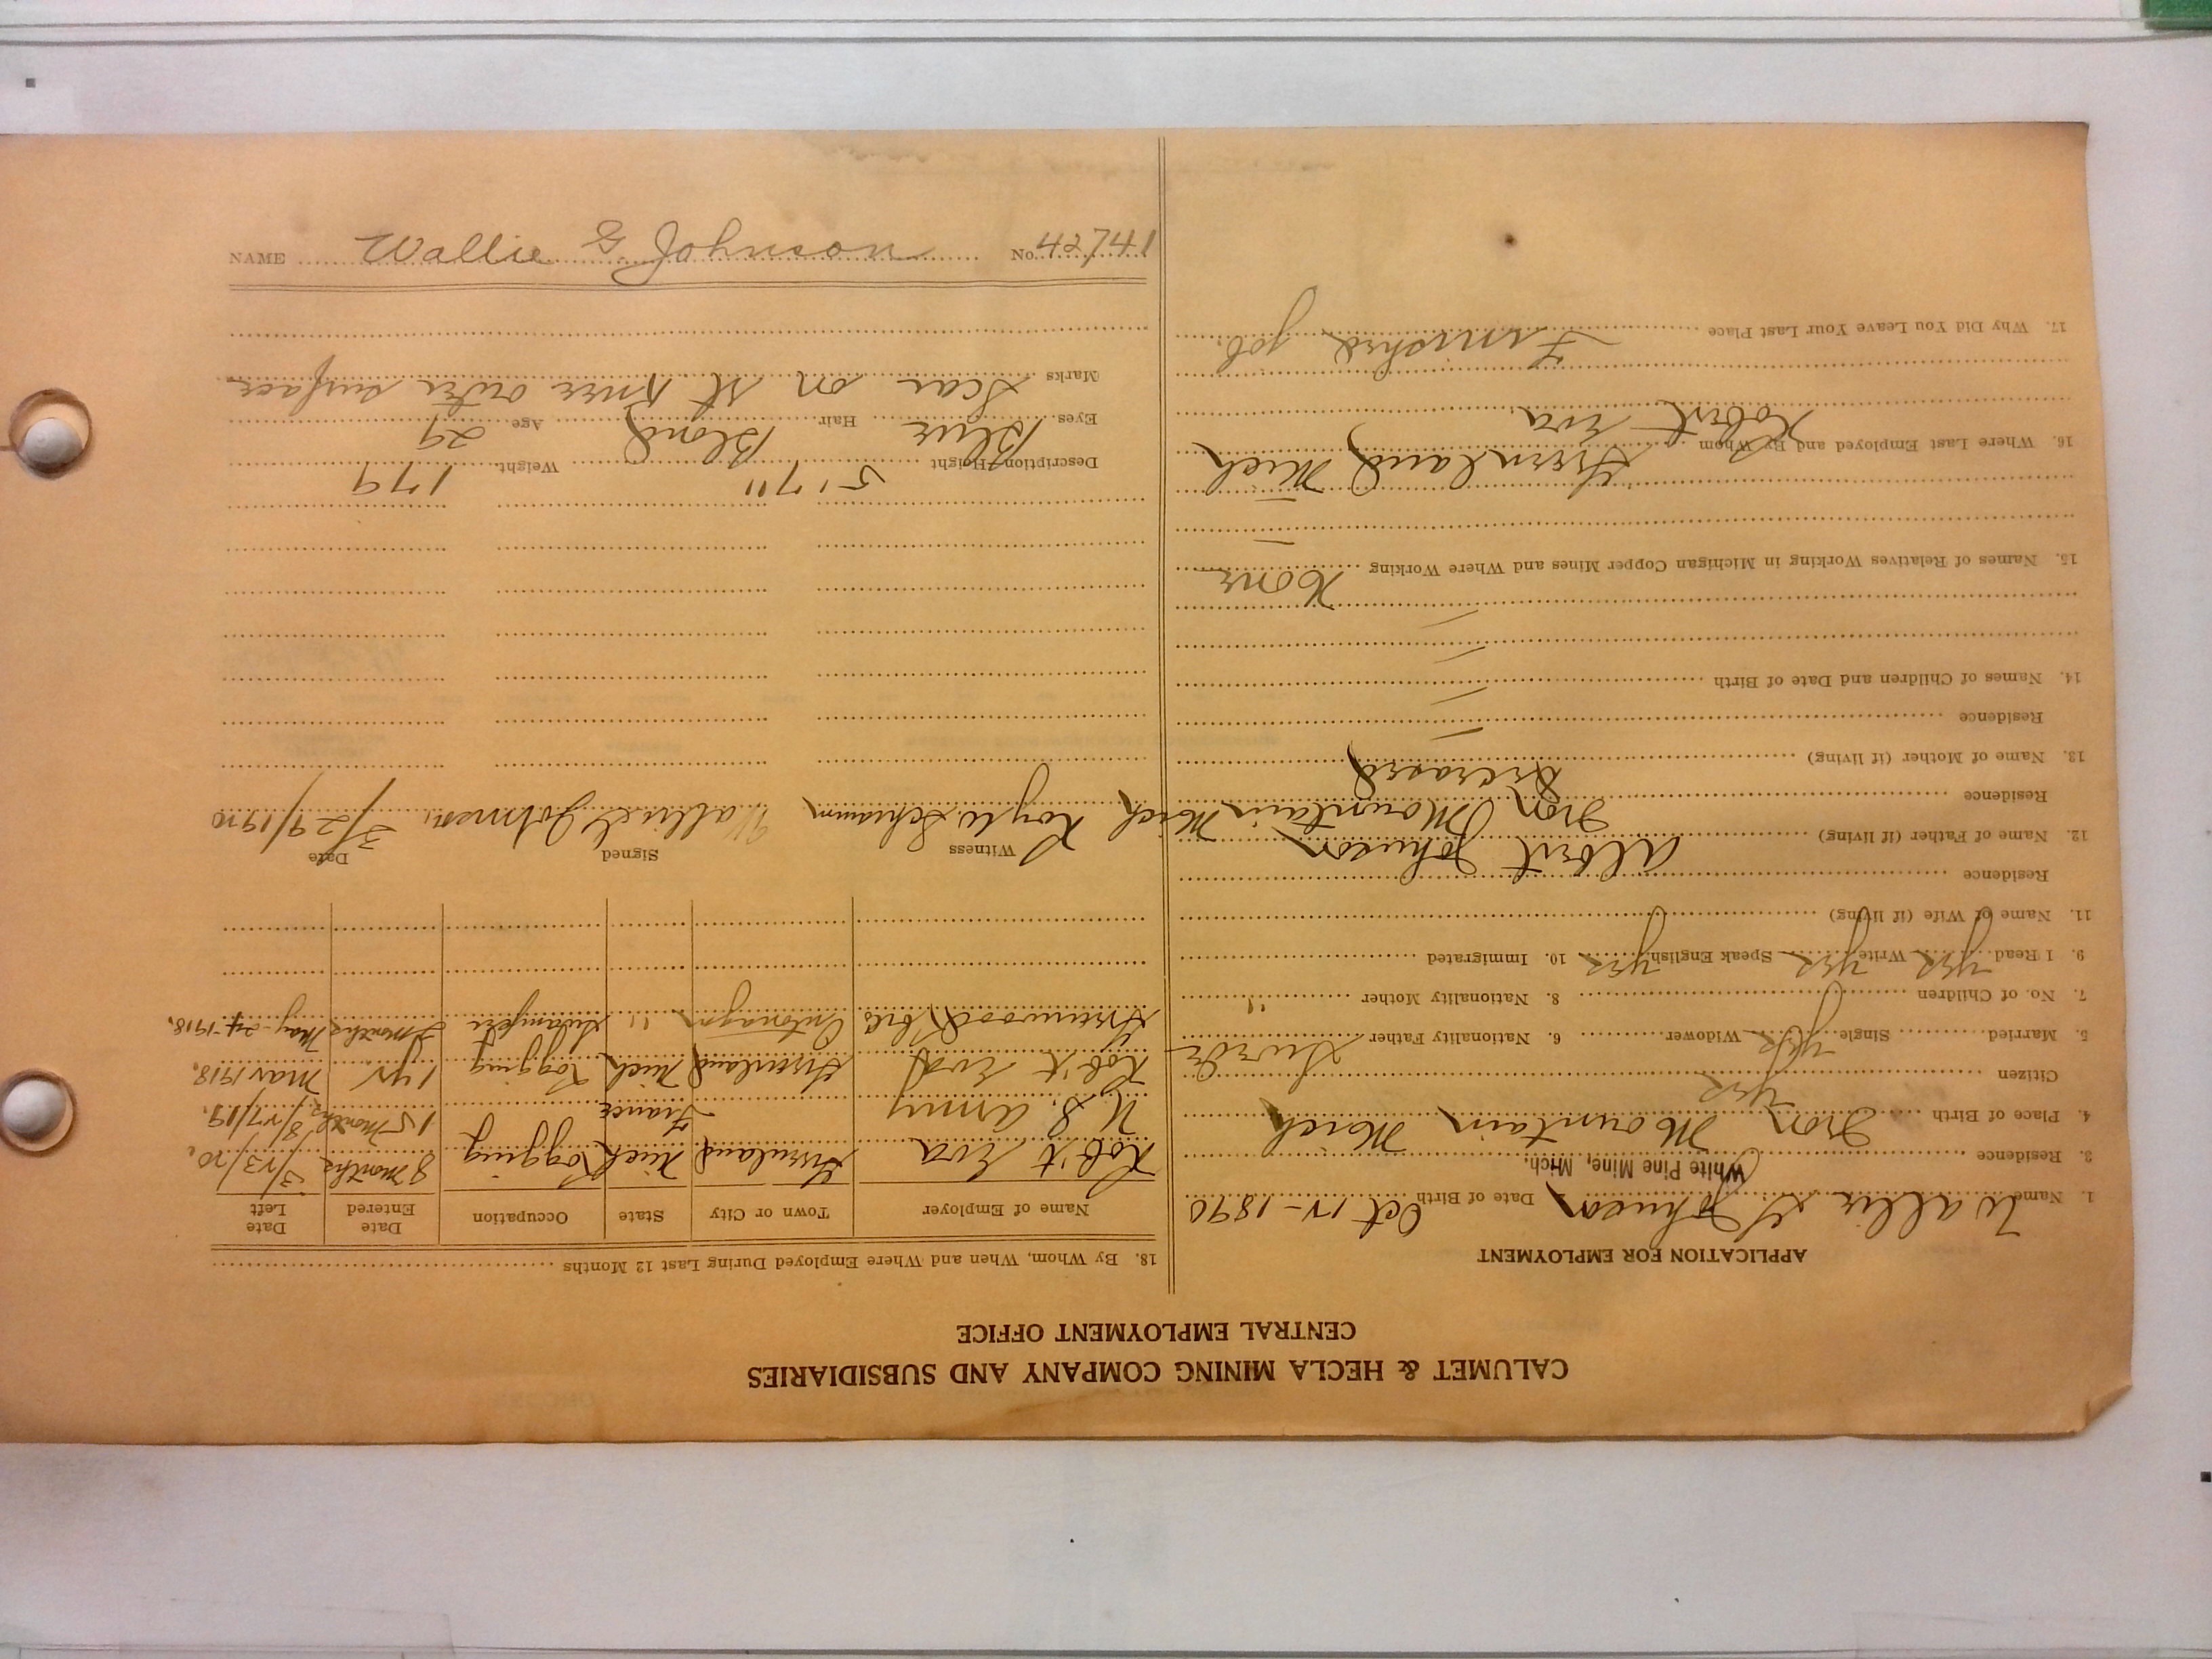 CALUMET & HECLA MINING COMPANY AND SUBSIDIARIES
CENTRAL EMPLOYMENT OFFICE
APPLICATION FOR EMPLOYMENT
1. Name Wallie G Johnson 2. Date of Birth Oct 12-1890
3. Residence White Pine Mine, Mich.
4. Place of Birth Iron Mountain Mich
Citizen Yes
5. Married Single yes Widower 6. Nationality Father Swede
7. No. of Children 8. Nationality Mother "
9. I Read yes Write yes Speak English yes 10. Immigrated
11. Name of Wife (if living)
Residence
12. Name of Father (if living) Albert Johnson
Residence Iron Mountain Mich
13. Name of Mother (if living) Deceased
Residence —
14. Names of Children and Date of Birth —
—
15. Names of Relatives Working in Michigan Copper Mines and Where Working None
—
16. Where Last Employed and By Whom Greenland Mich
Robert Eva
17. Why Did You Leave Your Last Place Finished job.
18. By Whom, When and Where Employed During Last 12 Months
Name of Employer Town or City State Occupation Date Entered Date Left
Rob't Eva Greenland Mich Logging 8 months 3/23/20.
U. S. Army France 15 months 8/27/19.
Rob't Eva Greenland Mich Logging 1 yr Mar 1918.
Greenwood Ontonagon " 2 months May-24-1918.
Witness Signed Date
Roy W. Schramm Wallie G Johnson 3/29/1920
Description—Height 5' 7" Weight 179
Eyes Blue Hair Blond Age 29
Marks Scar on Rt Knee outer surface
NAME Wallie G. Johnson No. 42741